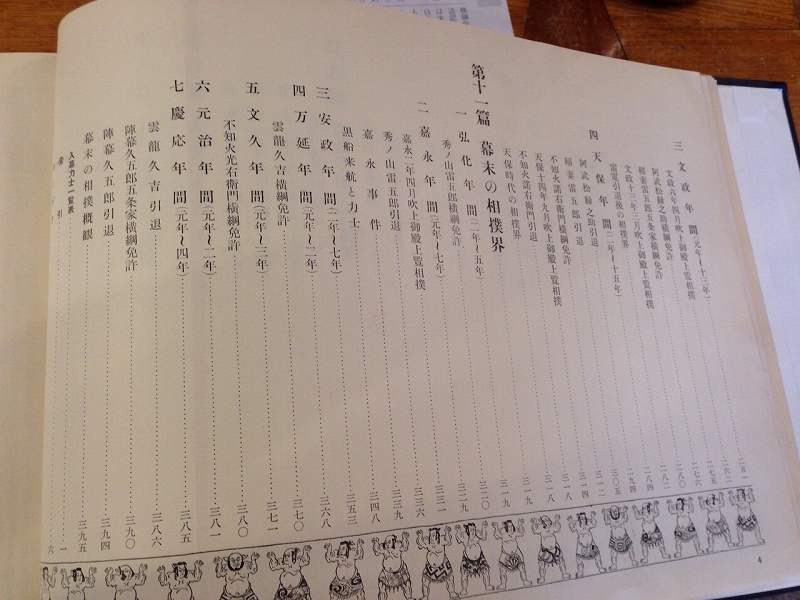 三 文政年間(元年〜十三年)……二五一
文政六年四月吹上御殿上覧相撲……二六二
阿武松緑之助横綱免許……二七五
稲妻雷五郎五条家横綱免許……二七六
文政十二年三月吹上御殿上覧相撲……二八〇
雷電引退後の相撲界……二八二
四 天保年間(二年〜十五年)……二八四
阿武松緑之助引退……二九四
稲妻雷五郎引退……三〇五
不知火諾右衛門横綱免許……三一二
天保十四年九月吹上御殿上覧相撲……三一四
不知火諾右衛門引退……三一八
天保時代の相撲界……三一八
第十一篇 幕末の相撲界……三一九
一 弘化年間(二年〜五年)……三一九
秀ノ山雷五郎横綱免許……三二〇
二 嘉永年間(元年〜七年)……三二九
嘉永二年四月吹上御殿上覧相撲……三三一
秀ノ山雷五郎引退……三三六
嘉永事件……三三九
黒船来航と力士……三四八
三 安政年間(二年〜七年)……三五三
四 万延年間(元年〜二年)……三六八
雲龍久吉横綱免許……三七〇
五 文久年間(元年〜三年)……三七一
不知火光右衛門横綱免許……三八〇
六 元治年間(元年〜二年)……三八一
七 慶応年間(元年〜四年)……三八五
雲龍久吉引退……三八六
陣幕久五郎五条家横綱免許……三九〇
陣幕久五郎引退……三九四
幕末の相撲概観……三九五
入幕力士一覧表……一
索引……六
4